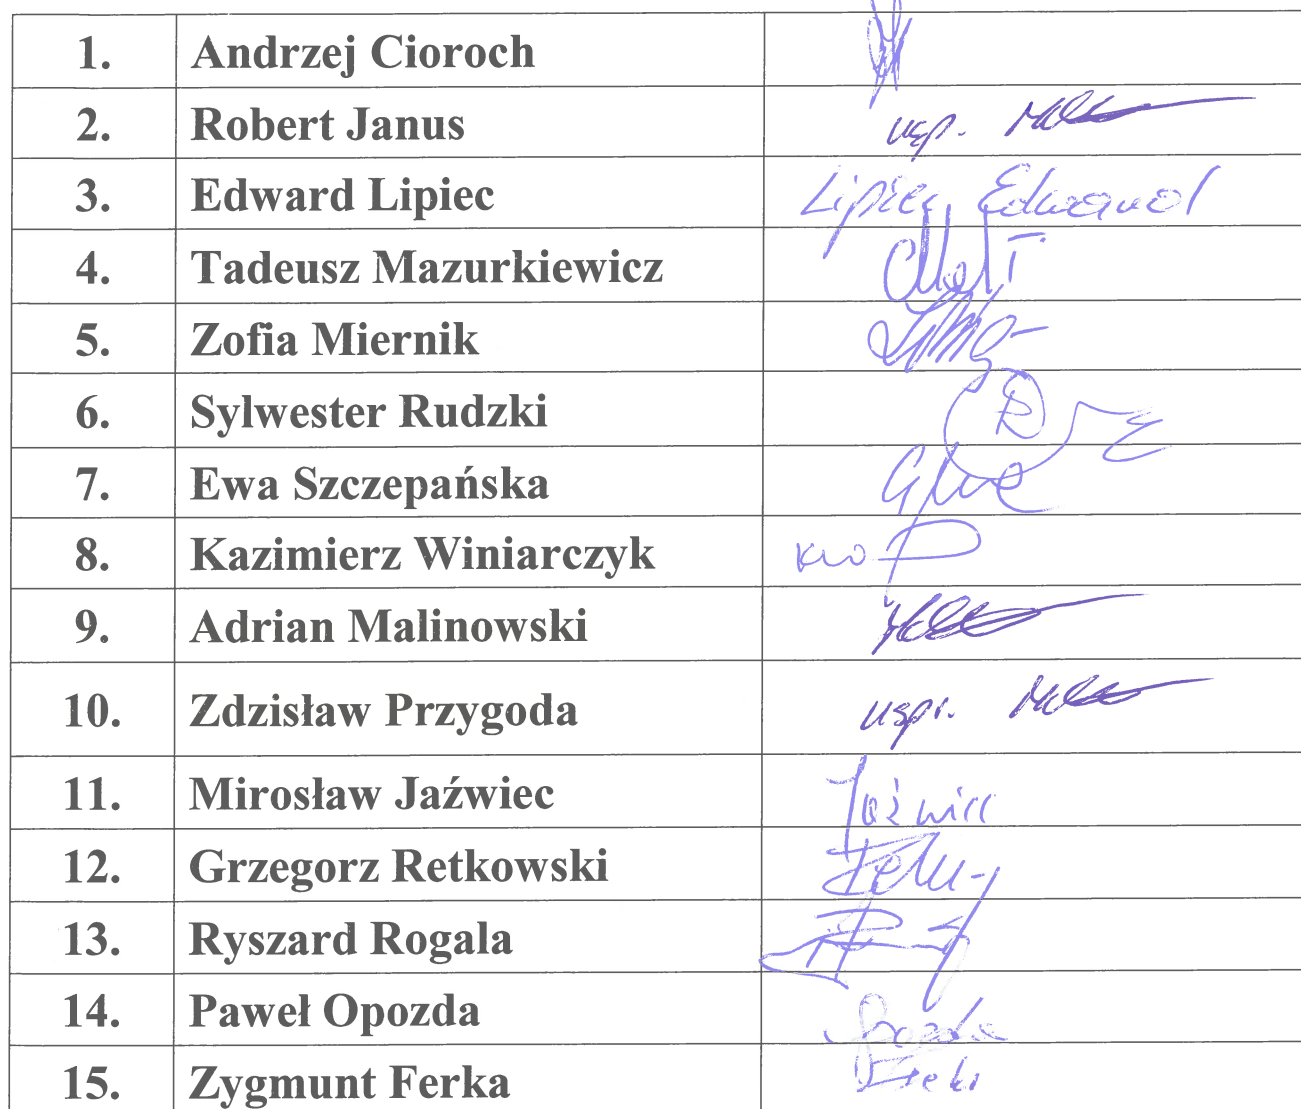 1. Andrzej Cioroch
2. Robert Janus usp.
3. Edward Lipiec Lipiec Edward
4. Tadeusz Mazurkiewicz
5. Zofia Miernik
6. Sylwester Rudzki
7. Ewa Szczepańska
8. Kazimierz Winiarczyk
9. Adrian Malinowski
10. Zdzisław Przygoda uspr.
11. Mirosław Jaźwiec
12. Grzegorz Retkowski
13. Ryszard Rogala
14. Paweł Opozda
15. Zygmunt Ferka